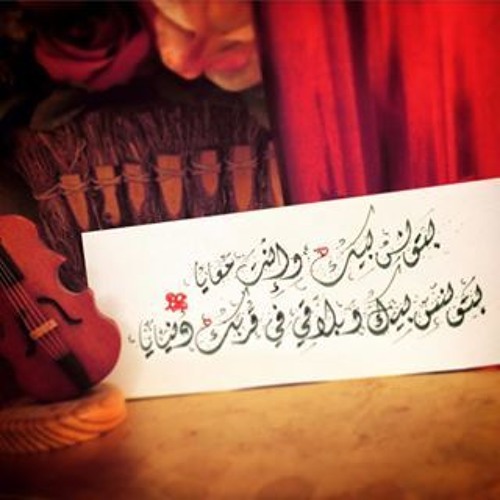 بتونس بيك وإنت معايا
بتونس بيك وبلاقي في قربك دنيايا